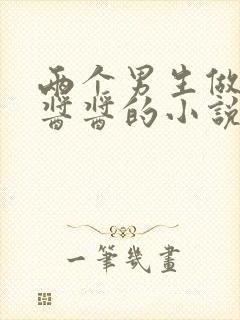 两个男生做
酱酱的小說
一筆幾畫